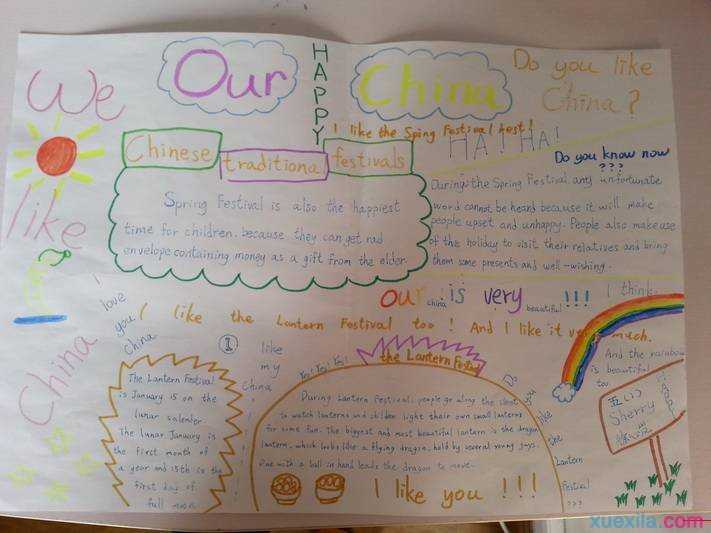 We
like
China
Our
HAPPY
China
Do you like
China?
I like the Sping Festival best!
HA! HA!
Do you know now
???
Chinese traditional festivals
Spring Festival is also the happiest
time for children. because they can get rad
envelope containing money as a gift from the elder
During the Spring Festival any unfortunate
word cannot be heard because it will make
people upset and unhappy. People also make use
of the holiday to visit their relatives and bring
them some presents and well-wishing.
Our china is very beautiful!!! I think.
I love
you
China
I like the Lantorn Festival too! And I like it very much.
And the rainbow
is beautiful
too
1
like
my
China
the Lantern Festival
The Lantern Festival
is January 15 on the
lunar calendor
The lunar January is
the first month of
a year and 15th is the
first day of
full moon
During Lantern Festival, people go along the street
to watch lanterns and children light their own small lanterns
for some fun. The biggest and most beautiful lantern is the dragon
lantern, which looks like a flying dragon, held by several young guys.
One with a ball in hand leads the dragon to move.
I like you!!!
Do
you
like
the
Lantern
Festival
???
五(1)
Sherry
xuexila.com